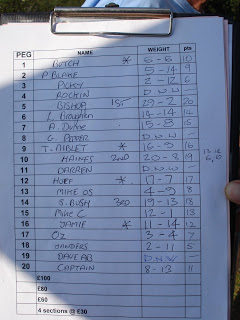 PEG NAME WEIGHT pts
1 BUTCH * 6 - 6 10
2 P BLAKE 5 - 14 9
3 2 - 12 6
4 ROCKIN D.N.W -
5 BISHOP 1ST 29 - 2 20
6 L. Broughton 14 - 14 14
7 A. Dunne 5 - 8 8
8 G. PEPPER D.N.W -
9 T. RIBLET * 16 - 9 16
10 HAINES 2ND 20 - 8 19
11 DARREN D.N.W -
12 HUFF * 17 - 7 17
13 MIKE OS 4 - 9 8
14 S. BUSH 3RD 19 - 13 18
15 MIKE C 12 - 1 13
16 JAMIE * 11 - 14 12
17 OZ 3 - 4 7
18 SANDERS 2 - 11 5
19 DAVE AB D.N.W -
20 CAPTAIN 8 - 13 11
£100
£80
£60
4 sections @ £30